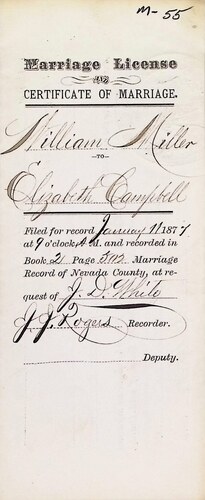 M-55
Marriage License
AND
CERTIFICATE OF MARRIAGE.
William Miller
—TO—
Elizabeth Campbell
Filed for record January 11 1877
at 9 o'clock A.M. and recorded in
Book 2 Page 502 Marriage
Record of Nevada County, at re-
quest of J. D. White
J. J. Rogers Recorder.
Deputy.